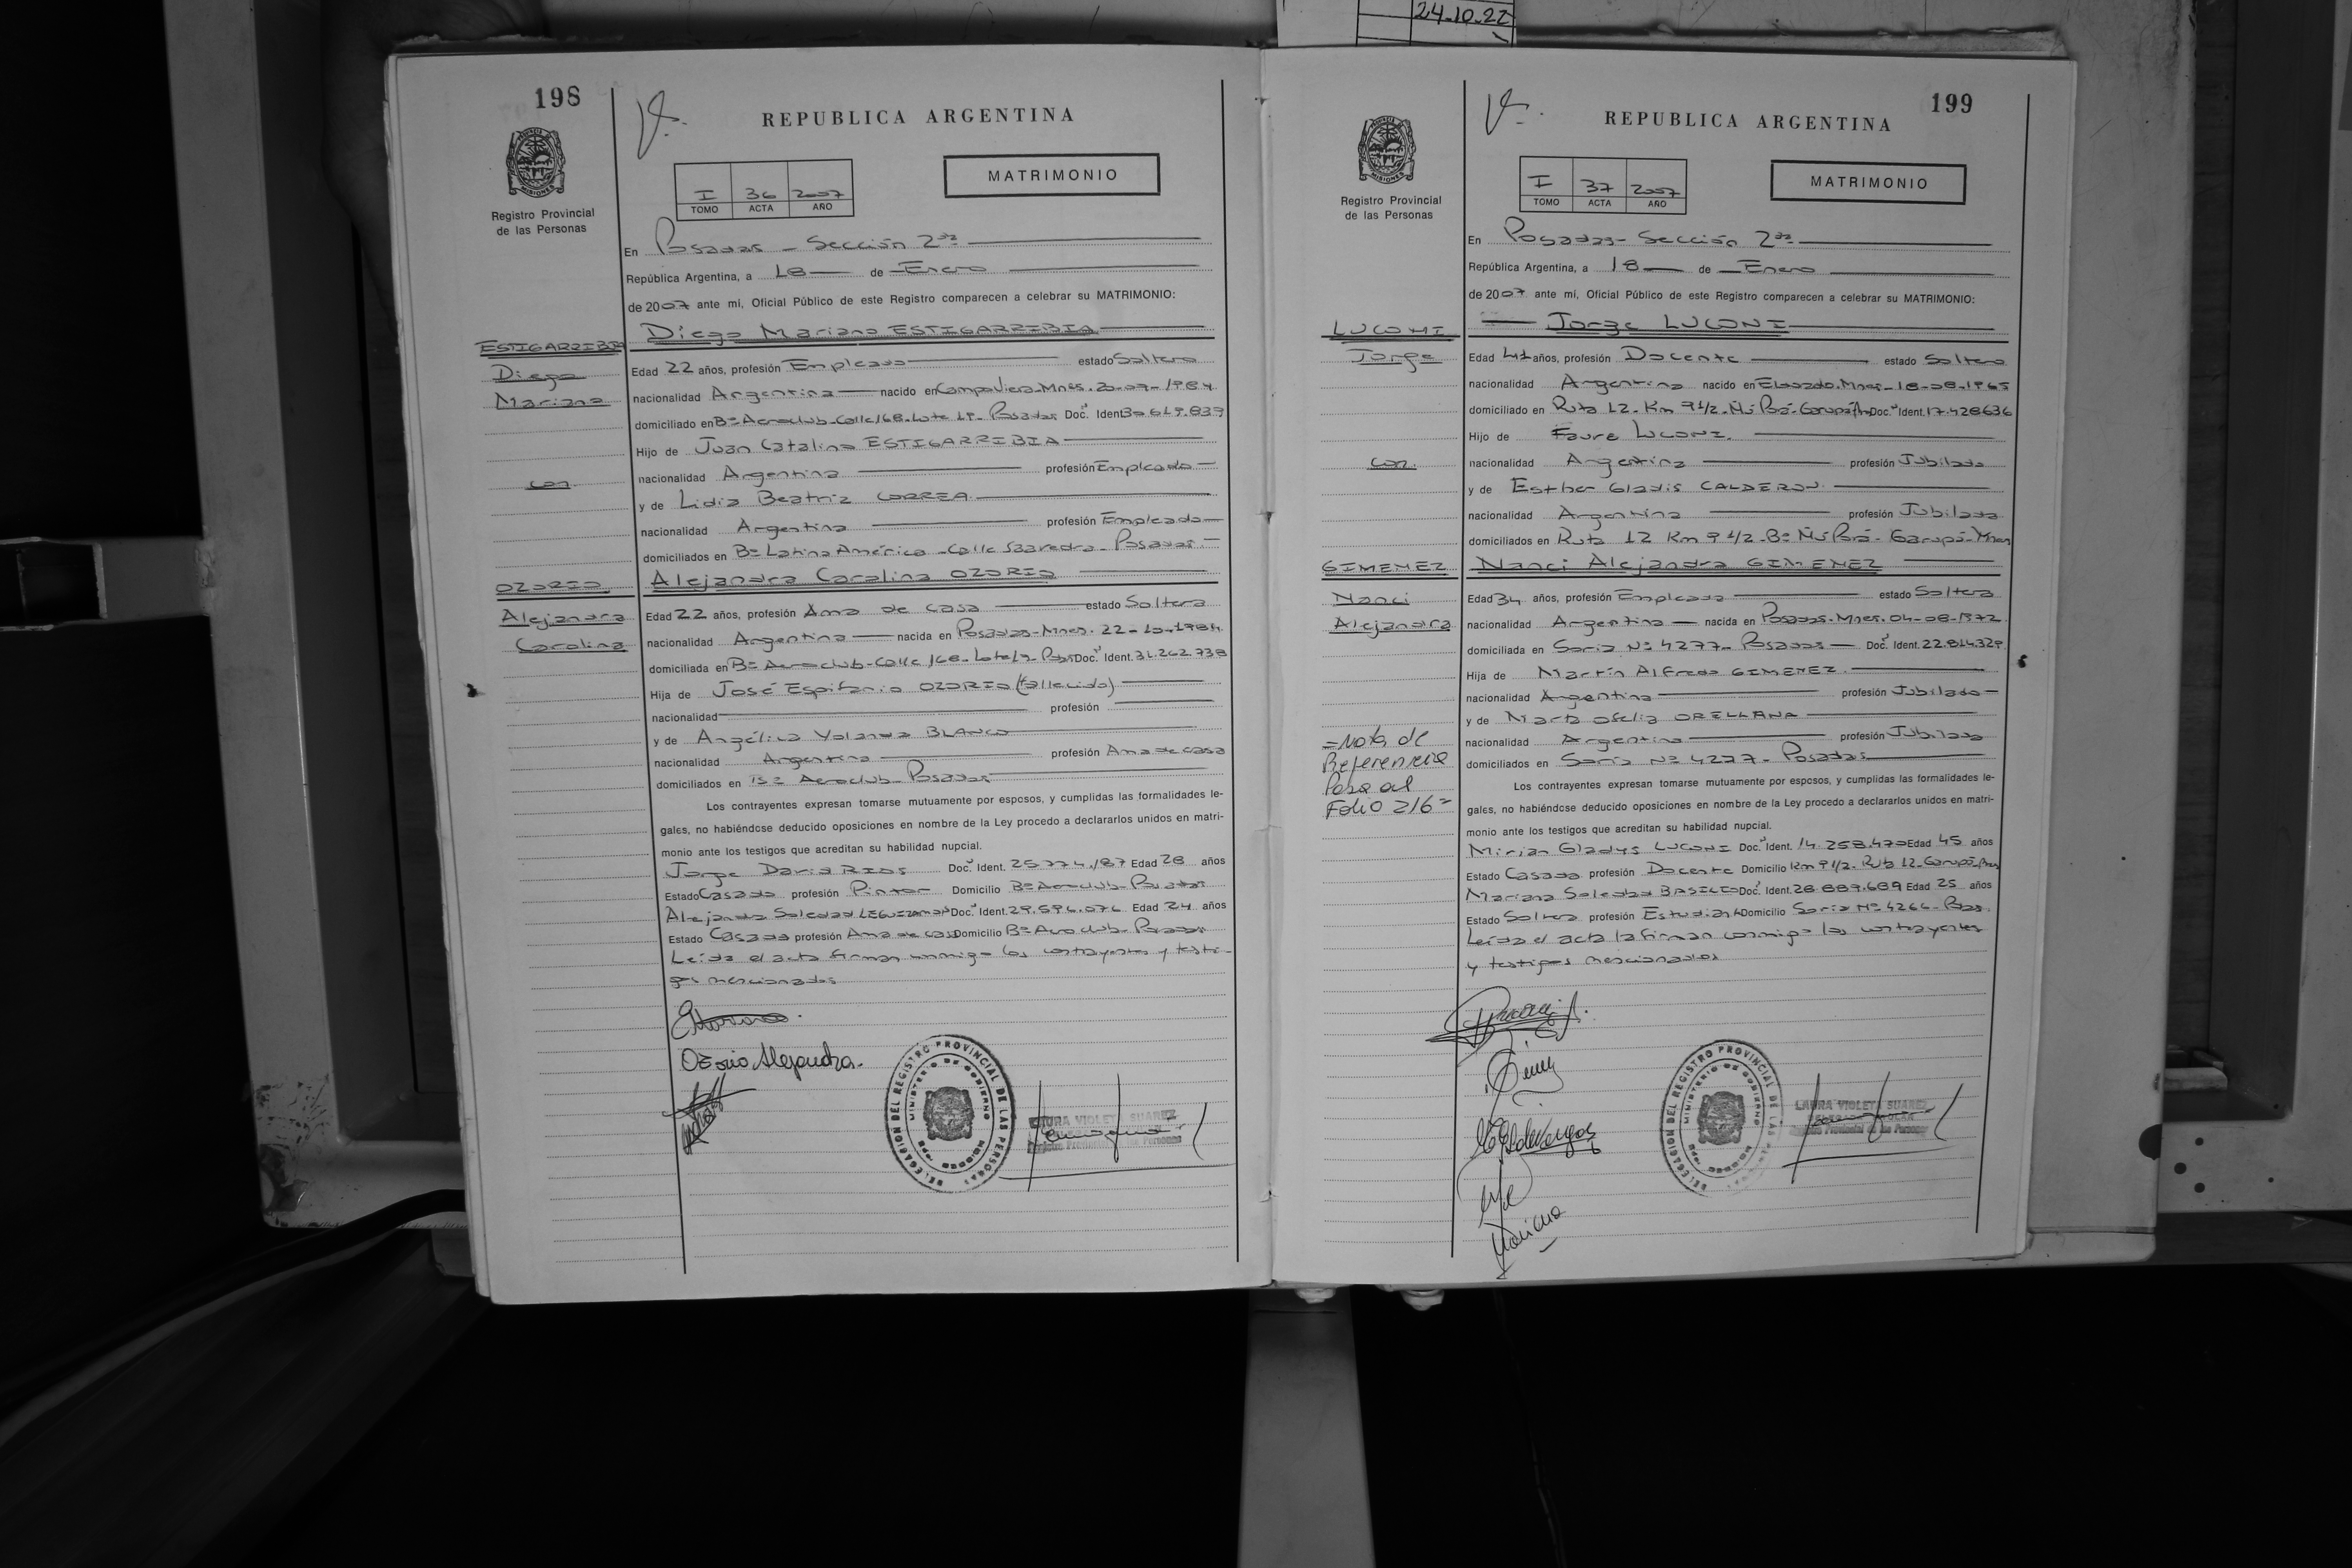 24-10-22
198
REPUBLICA ARGENTINA
I 36 2007
TOMO ACTA AÑO
MATRIMONIO
Registro Provincial
de las Personas
En Posadas - Sección 2da
República Argentina, a 18 de Enero
de 2007 ante mí, Oficial Público de este Registro comparecen a celebrar su MATRIMONIO:
ESTIGARRIBIA
Diego
Mariano
con
OZORIO
Alejandra
Carolina
Diego Mariano ESTIGARRIBIA
Edad 22 años, profesión Empleado estado Soltero
nacionalidad Argentina nacido en Campo Viera-Mnes. 20-07-1984
domiciliado en Bº Aeroclub-Calle 168-Lote 19- Posadas Doc. Ident. 30.619.839
Hijo de Juan Catalino ESTIGARRIBIA
nacionalidad Argentina profesión Empleado
y de Lidia Beatriz CORREA
nacionalidad Argentina profesión Empleada
domiciliados en Bº Latino América - Calle Saavedra - Posadas.
Alejandra Carolina OZORIO
Edad 22 años, profesión Ama de casa estado Soltera
nacionalidad Argentina nacida en Posadas-Mnes. 22-10-1984
domiciliada en Bº Aeroclub-Calle 168-Lote 19- Doc. Ident. 31.262.738
Hija de José Espifanio OZORIO (fallecido)
nacionalidad profesión
y de Angélica Yolanda BLANCO
nacionalidad Argentina profesión Ama de casa
domiciliados en Bº Aeroclub - Posadas
Los contrayentes expresan tomarse mutuamente por esposos, y cumplidas las formalidades le-
gales, no habiéndose deducido oposiciones en nombre de la Ley procedo a declararlos unidos en matri-
monio ante los testigos que acreditan su habilidad nupcial.
Jorge David RIOS Doc. Ident. 25.774.187 Edad 28 años
Estado Casado profesión Pintor Domicilio Bº Aeroclub-Posadas
Alejandra Soledad LEGUIZAMON Doc. Ident. 29.596.076 Edad 24 años
Estado Casada profesión Ama de casa Domicilio Bº Aeroclub-Posadas
Leída el acta firman conmigo los contrayentes y testi-
gos mencionados
Ozorio Alejandra.
DELEGACION DEL REGISTRO PROVINCIAL DE LAS PERSONAS
MINISTERIO DE GOBIERNO
LAURA VIOLETA SUAREZ
Registro Provincial de las Personas
199
REPUBLICA ARGENTINA
I 37 2007
TOMO ACTA AÑO
MATRIMONIO
Registro Provincial
de las Personas
En Posadas - Sección 2da
República Argentina, a 18 de Enero
de 2007 ante mí, Oficial Público de este Registro comparecen a celebrar su MATRIMONIO:
LUCONI
Jorge
con
GIMENEZ
Nanci
Alejandra
=Nota de
Referencia
Pasa al
Folio 216=
Jorge LUCONI
Edad 41 años, profesión Docente estado Soltero
nacionalidad Argentina nacido en Eldorado.Mnes-18-08-1965
domiciliado en Ruta 12-Km 9 1/2-Ñú Porá-Garupá Doc. Ident. 17.428636
Hijo de Faure LUCONI
nacionalidad Argentina profesión Jubilado
y de Esther Gladis CALDERON
nacionalidad Argentina profesión Jubilada
domiciliados en Ruta 12 Km 9 1/2-Bº Ñú Porá-Garupá-Mnes
Nanci Alejandra GIMENEZ
Edad 34 años, profesión Empleada estado Soltera
nacionalidad Argentina nacida en Posadas-Mnes. 04-08-1972
domiciliada en Soria Nº 4277- Posadas Doc. Ident. 22.814.329
Hija de Martín Alfredo GIMENEZ
nacionalidad Argentina profesión Jubilado
y de Marta Ofelia ORELLANA
nacionalidad Argentina profesión Jubilada
domiciliados en Soria Nº 4277- Posadas
Los contrayentes expresan tomarse mutuamente por esposos, y cumplidas las formalidades le-
gales, no habiéndose deducido oposiciones en nombre de la Ley procedo a declararlos unidos en matri-
monio ante los testigos que acreditan su habilidad nupcial.
Mirian Gladys LUCONI Doc. Ident. 14.258.470 Edad 45 años
Estado Casada profesión Docente Domicilio Km 9 1/2-Ruta 12-Garupá-Mnes
Mariana Soledad BASILIO Doc. Ident. 28.889.689 Edad 25 años
Estado Soltera profesión Estudiante Domicilio Soria Nº 4266-Pdas.
Leída el acta la firman conmigo los contrayentes
y testigos mencionados
Mariana
DELEGACION DEL REGISTRO PROVINCIAL DE LAS
MINISTERIO DE GOBIERNO
LAURA VIOLETA SUAREZ
Registro Provincial de las Personas